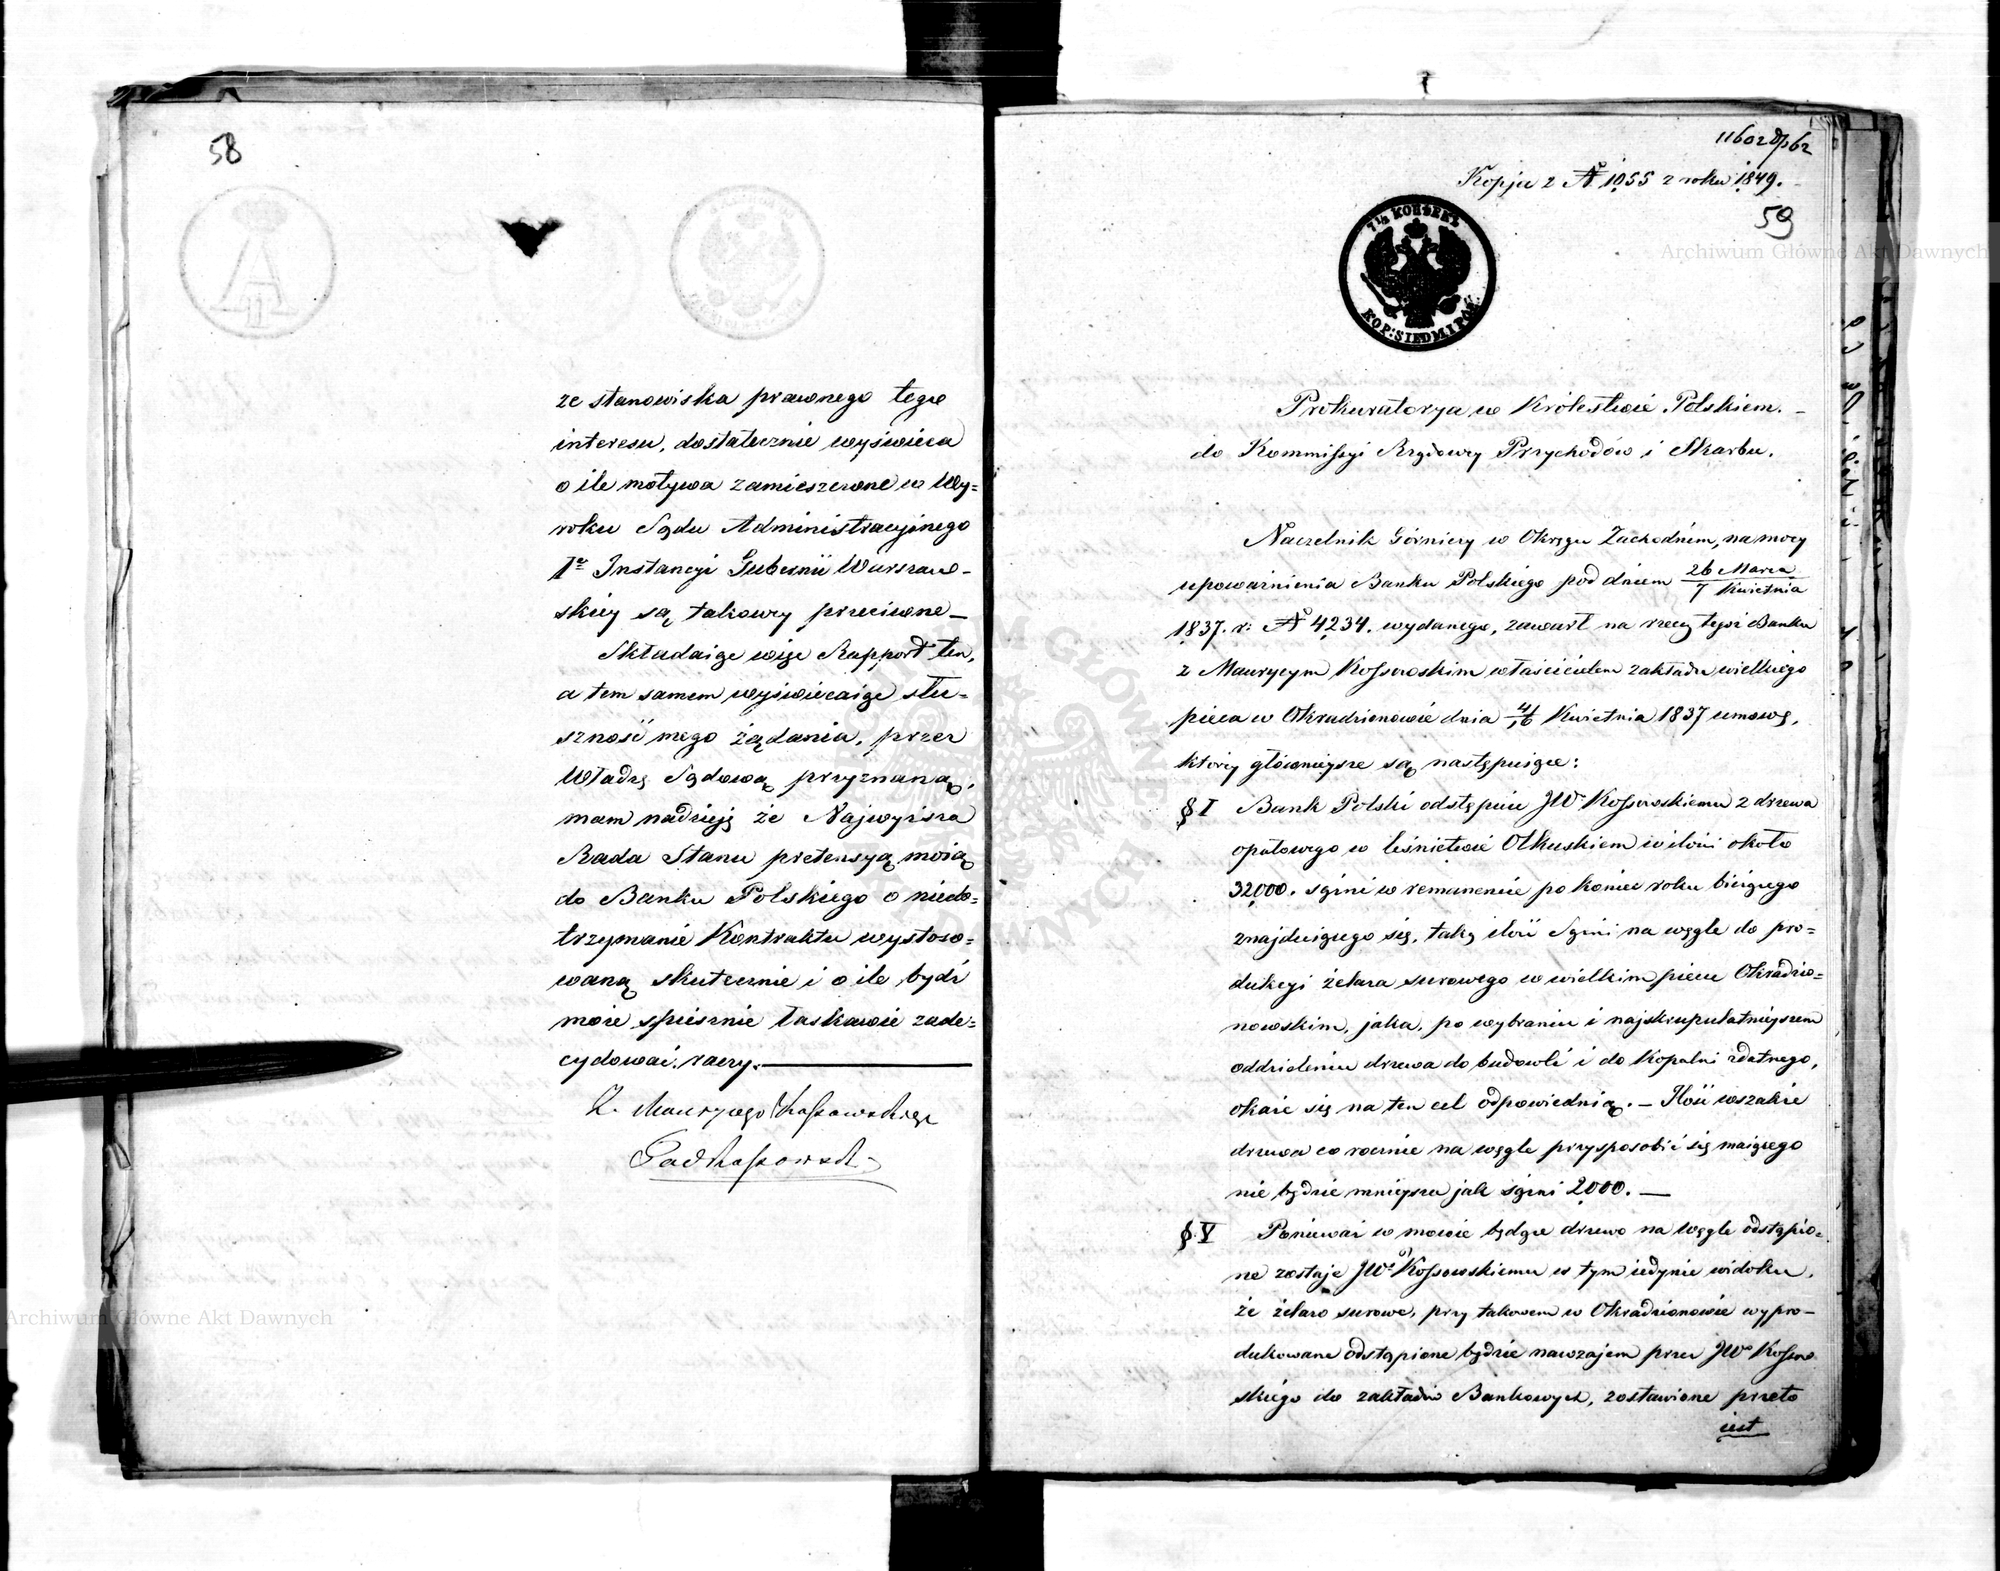 58
ze stanowiska prawnego tego
interesu, dostatecznie wyświeca
o ile motywa zamieszczone w Wy=
roku Sądu Administracyjnego
Iej Instancyi Gubernii Warszaw-
skiey są takowey przeciwne —
Składaiąc więc Rapport ten,
a tem samem wyświecaiąc słu=
szność mego żądania, przez
Władzę Sądową przyznaną,
mam nadzieję że Najwyższa
Rada Stanu pretensyą moią
do Banku Polskiego o niedo=
trzymanie Kontraktu wystoso=
waną skutecznie i o ile bydź
może spiesznie łaskawie zade=
cydować raczy.
Z. Maurycego Kossowskiego
11602 62
Kopja z N 1055 z roku 1849.
59
7½ KOPIEEK
KOP: SIEDM I PÓŁ
Prokuratorya w Królestwie Polskiem. -
do Kommissyi Rządowey Przychodów i Skarbu.
Naczelnik Górniczy w Okręgu Zachodnim, na mocy
upoważnienia Banku Polskiego pod dniem 26 Marca / 7 Kwietnia
1837. r: N 4234. wydanego, zawarł na rzecz tegoż Banku
z Maurycym Kossowskim właścicielem zakładu wielkiego
pieca w Okradzionowie dnia 4/16 Kwietnia 1837 umowę,
którey główniejsze są następuiące:
§ I Bank Polski odstępuie JWu Kossowskiemu z drzewa
opałowego w leśnictwie Olkuskiem w ilości około
32000. sążni w remanencie po koniec roku bieżącego
znajduiącego się, taką ilość Sążni na węgle do pro=
dukcyi żelaza surowego w wielkim piecu Okradzio=
nowskim, jaka, po wybraniu i najskrupulatniejszem
oddzieleniu drzewa do budowli i do Kopalni zdatnego,
okaże się na ten cel odpowiednią. — Ilość wszakże
drzewa corocznie na węgle przysposobić się maiącego
nie będzie mniejsza jak sążni 2000. —
§. V Ponieważ w mowie będące drzewo na węgle odstąpio=
ne zostaje JWu Kossowskiemu w tym iedynie widoku,
że żelazo surowe, przy takowem w Okradzionowie wypro-
dukowane odstąpione będzie nawzajem przez JWo Kosso
skiego do zakładów Bankowych, zostawione przeto
iest
Archiwum Główne Akt Dawnych
Archiwum Główne Akt Dawnych